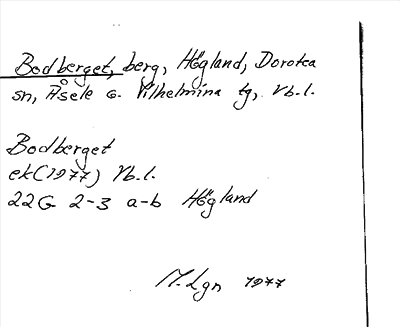 Bodberget, berg, Högland, Dorotea
sn, Åsele o. Vilhelmina tg, Vb.l.
Bodberget
ek(1977) Vb.l.
22G 2-3 a-b Högland
M.Lgn 1977